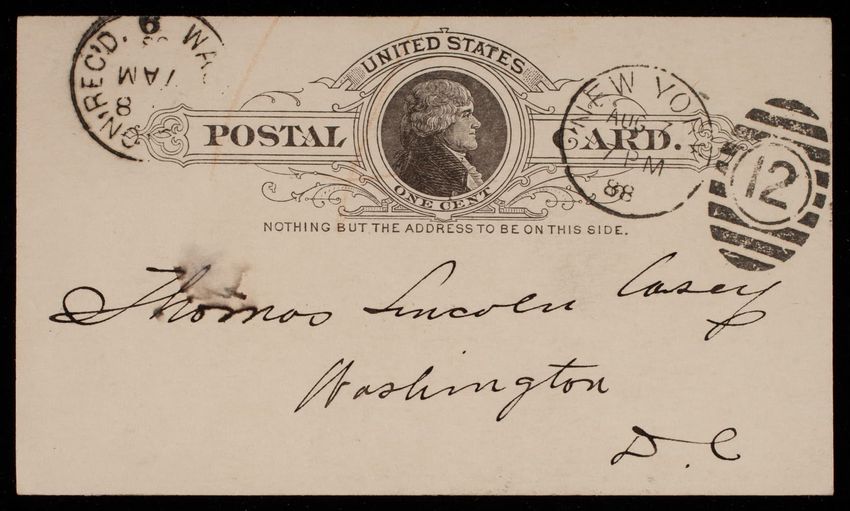 WA
N REC'D.
7 AM
8
UNITED STATES
POSTAL CARD.
ONE CENT
NEW YO
AUG 7
7 PM
88
12
NOTHING BUT THE ADDRESS TO BE ON THIS SIDE.
Thomas Lincoln Casey
Washington
D.C